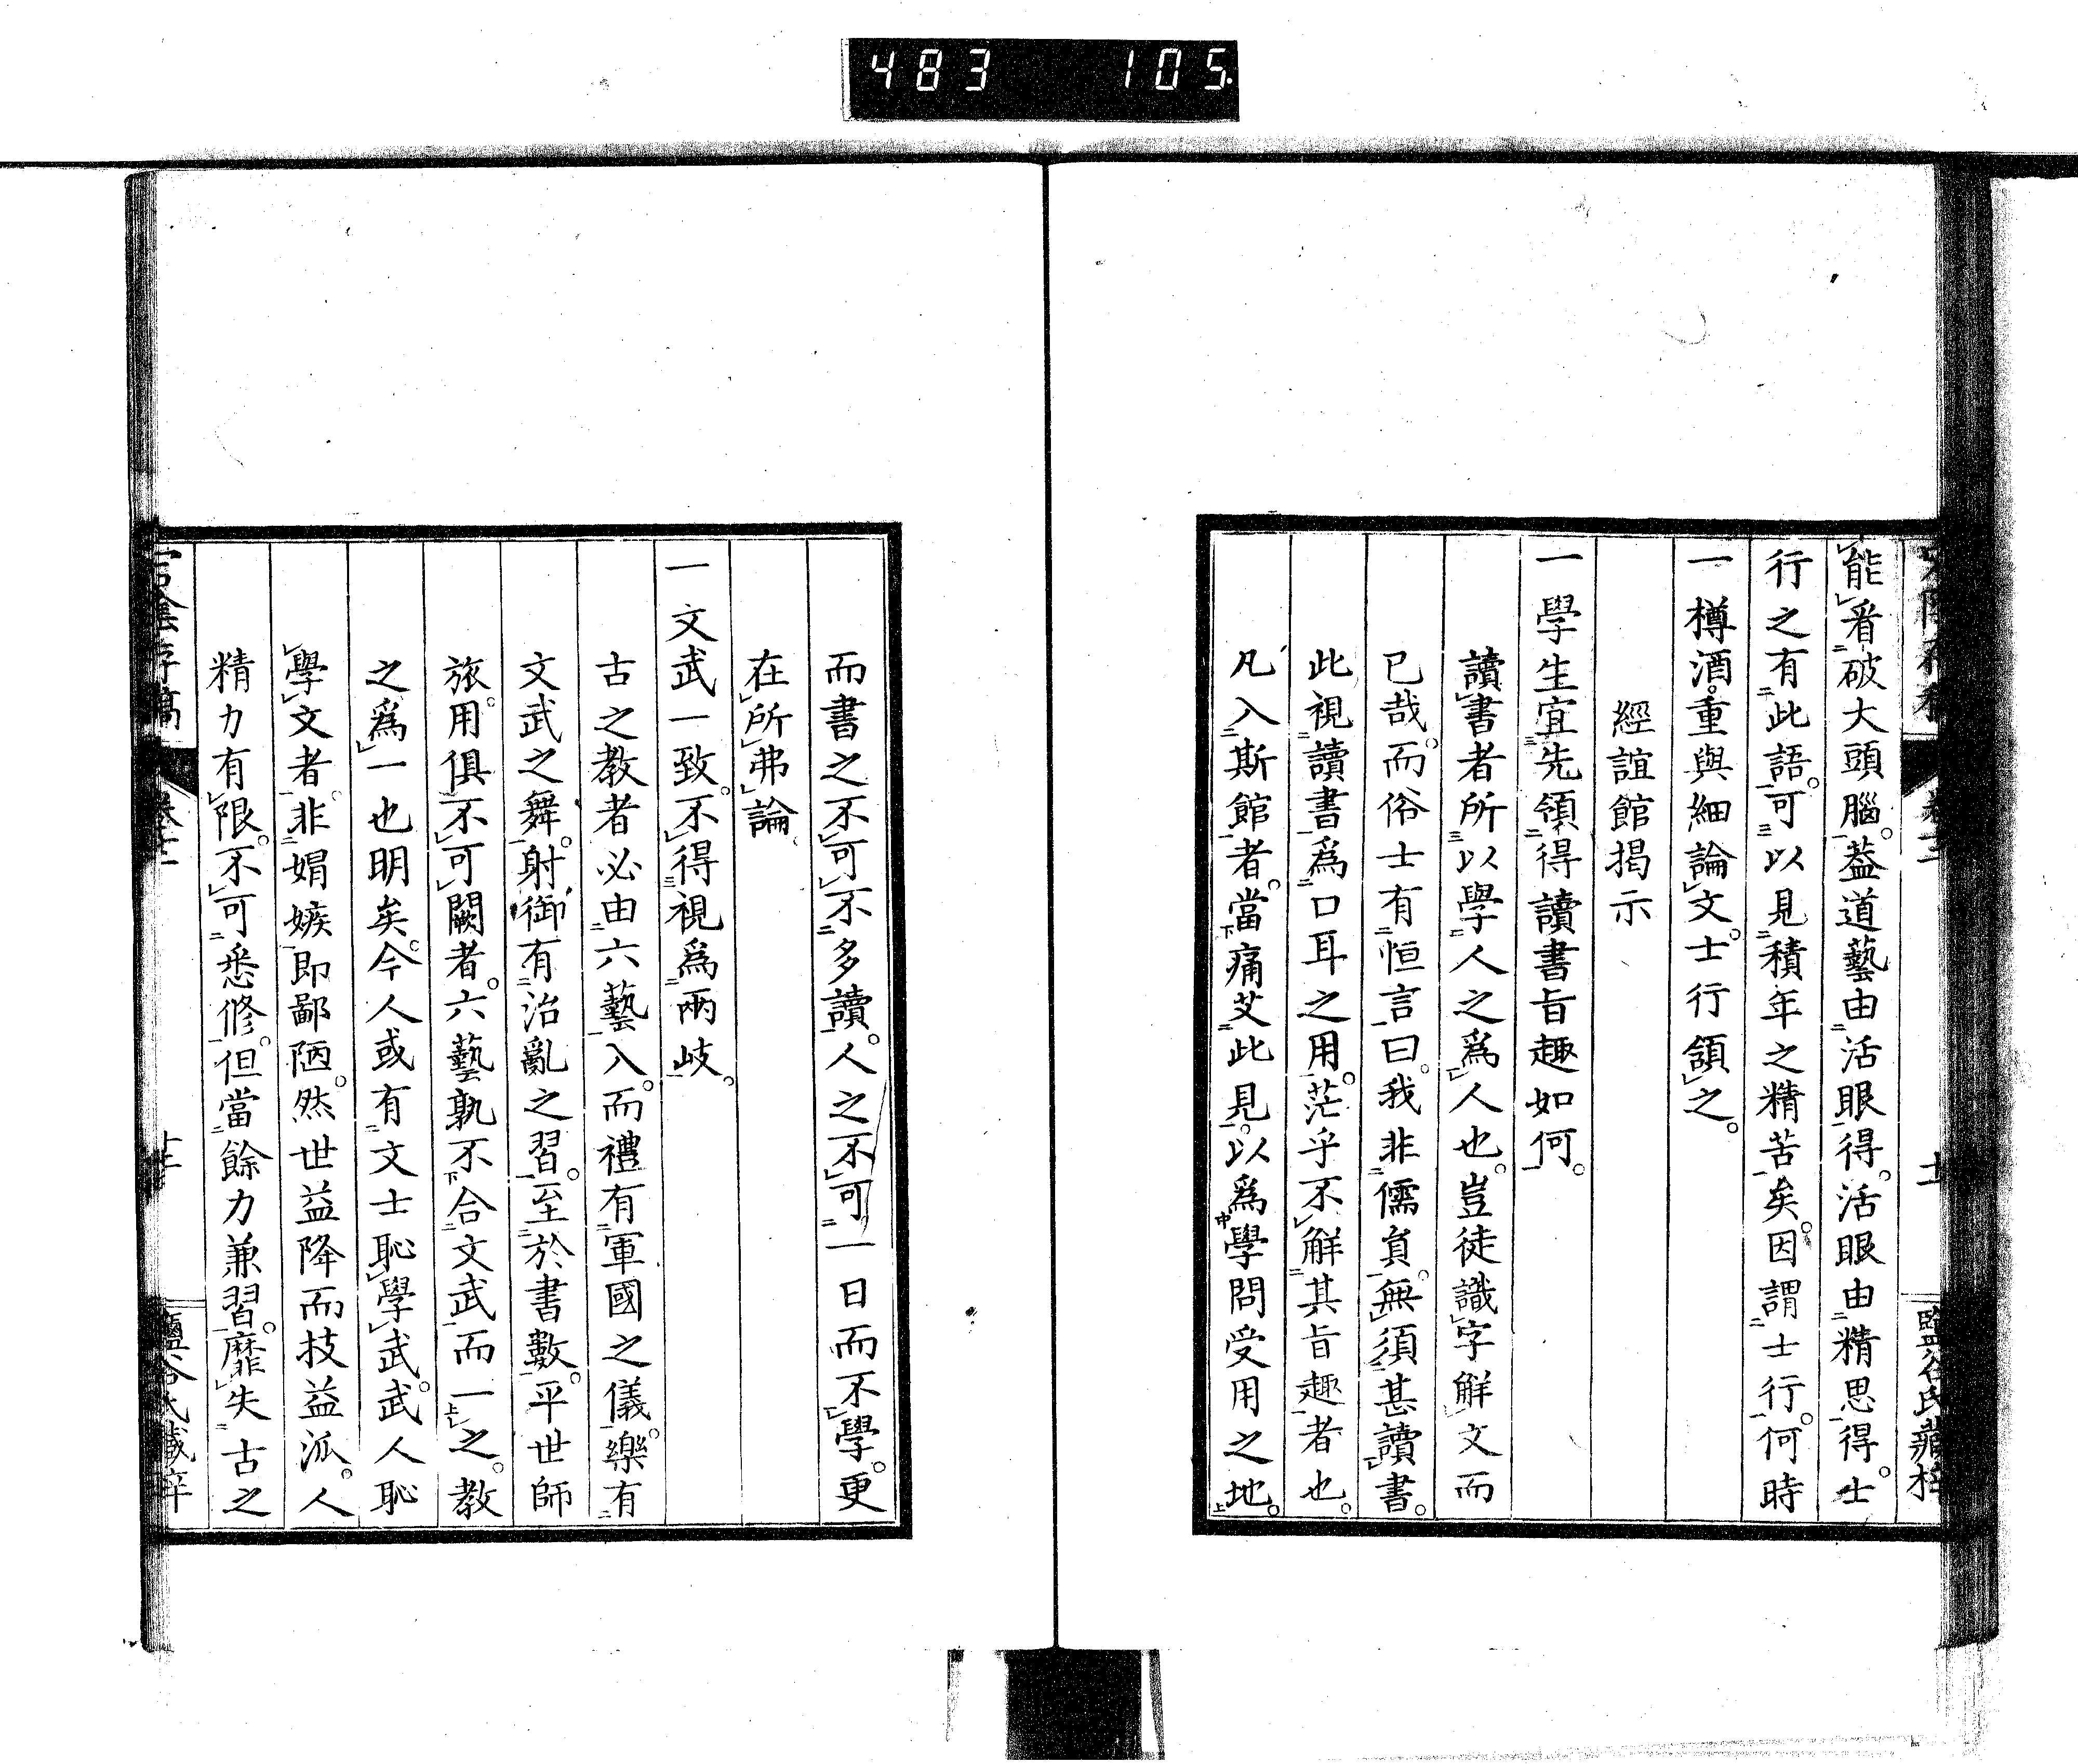 483 105
能看破大頭腦。葢道藝由活眼得。活眼由精思得。士
行之有此語。可以見積年之精苦矣。因謂士行。何時
一樽酒。重與細論文。士行頷之。
經誼館揭示
一學生宜先領得讀書旨趣如何。
讀書者所以學人之爲人也。豈徒識字解文而
已哉。而俗士有恒言曰。我非儒員。無須甚讀書。
此視讀書爲口耳之用。茫乎不解其旨趣者也。
凡入斯館者。當痛艾此見。以爲學問受用之地。
而書之不可不多讀。人之不可一日而不學。更
在所弗論
一文武一致。不得視爲兩岐。
古之教者必由六藝入。而禮有軍國之儀。樂有
文武之舞。射御有治亂之習。至於書數。平世師
旅。用俱不可闕者。六藝孰不合文武而一之。教
之爲一也明矣。今人或有文士恥學武。武人恥
學文者。非娟嫉即鄙陋。然世益降而技益泒。人
精力有限。不可悉修。但當餘力兼習。靡失古之
宕陰存稿